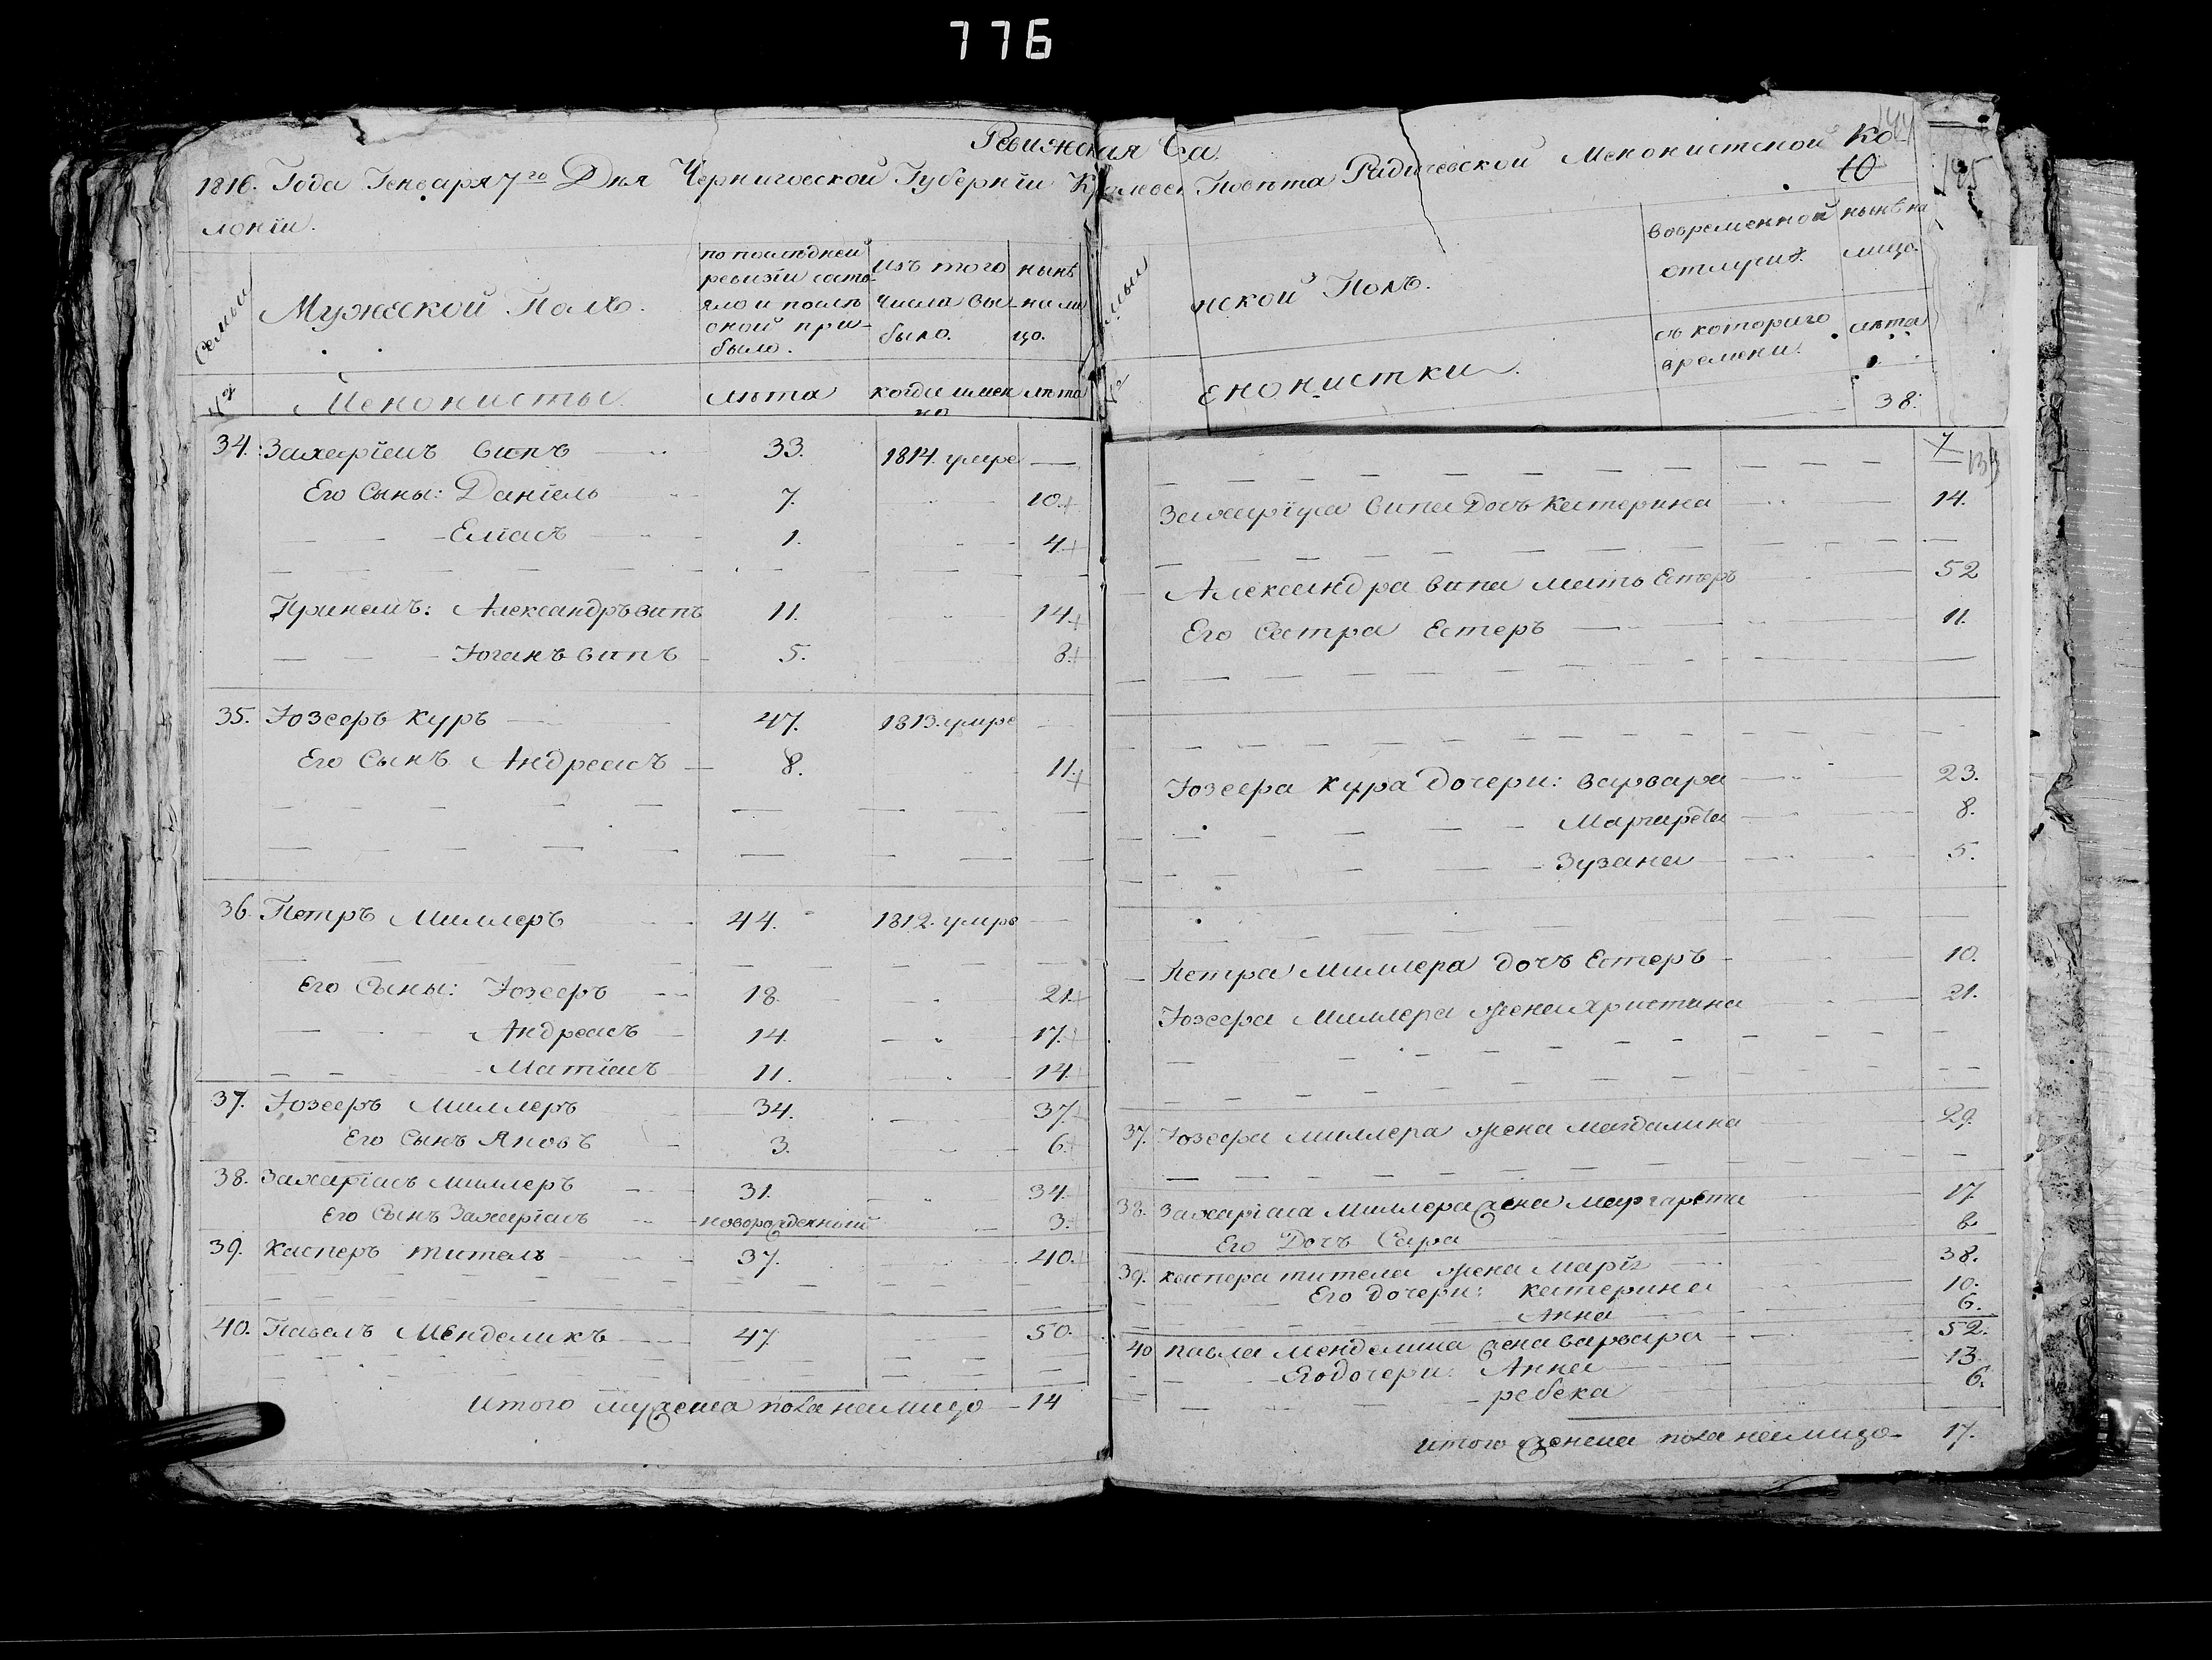 776
Ревижская Ска
1816. Года Генваря 7го Дня Черниговской Губернїи
Повѣта Радичевской Менонистской Ко
лонїи.
10
185
Семьи
Мужеской Полъ.
по последней
ревизїи состо-
яло и послѣ
оной при-
было.
изъ того
числа вы-
было.
нынѣ
на ли
цо.
№
Менонисты
лѣта
когда имен
но
лѣта
34. Захарїасъ Випъ 33. 1814. умре —
Его Сыны: Данїель 7. 10.
Елїасъ 1. 4.
Александръ Випъ 11. 14.
Іоганъ Випъ 5. 8.
35. Іозефъ Куръ 47. 1813. умре
Его Сынъ Андреасъ 8. 11.
36. Петръ Миллеръ 44. 1812. умре
Его Сыны: Іозефъ 18. 21.
Андреасъ 14. 17.
Матїасъ 11. 14.
37. Іозефъ Миллеръ 34. 37.
Его Сынъ Яковъ 3. 6.
38. Захарїасъ Миллеръ 31. 34.
Его Сынъ Захарїасъ новорожденный 3.
39. Касперъ Тительъ 37. 40.
40. Павелъ Менделикъ 47. 50.
Итого мужеска пола налицо 14
нской Полъ.
вовременной
отлучкѣ
нынѣ на
лицо.
съ котораго
времени.
лѣта
енонистки
38.
7
Захарїуса Випа Дочъ Катерина 14.
Александра Випа мать Естеръ 52
Его Сестра Естеръ 11.
Іозефа Кура Дочери: Варвара 23.
Маргарета 8.
Зузана 5.
Петра Миллера дочъ Естеръ 10.
Іозефа Миллера жена Христина 21.
37. Іозефа Миллера жена Магдалина 29.
38. Захарїаса Миллера жена Маргарета 17.
Его Дочъ Сара
39. Каспера Тителя жена Марїя 38.
Его дочери: Катерина 10.
Анна 6.
40 Павла Менделика жена Варвара 52.
Его дочери: Анна 13.
ребека 6.
Итого женска пола налицо 17.